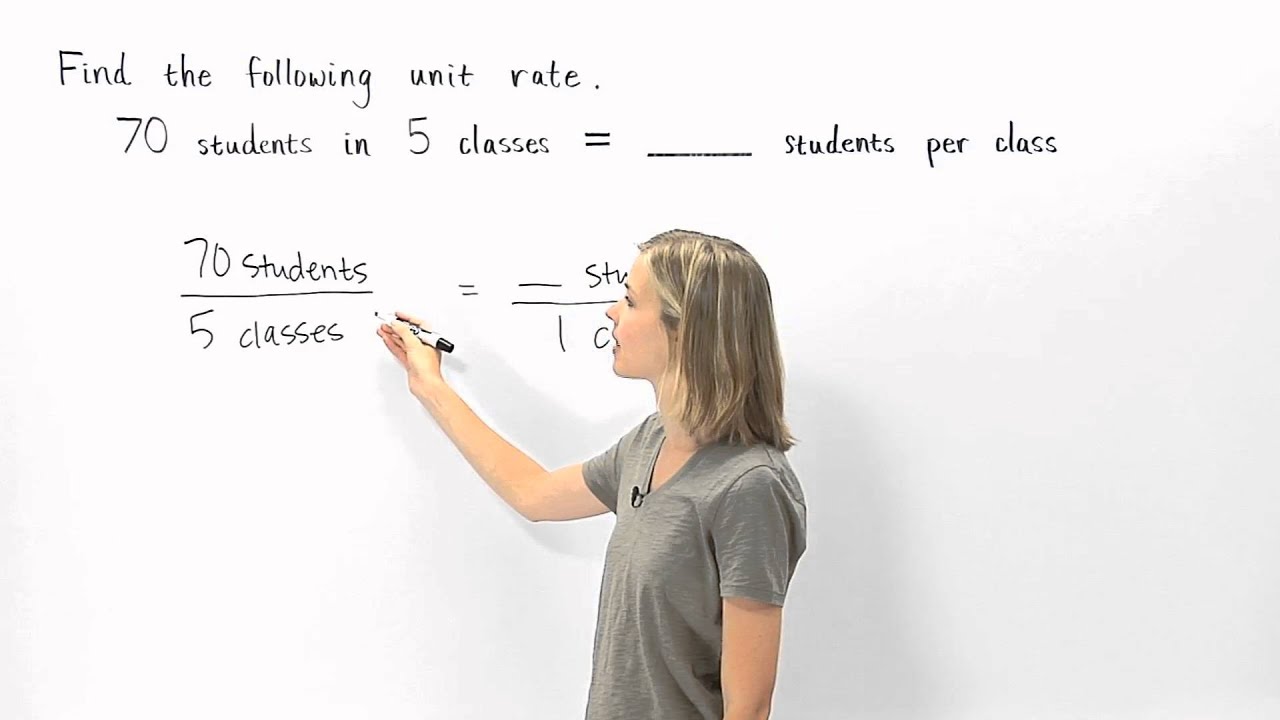 Find the following unit rate.
70 students in 5 classes = _____ students per class
70 students = __
5 classes 1